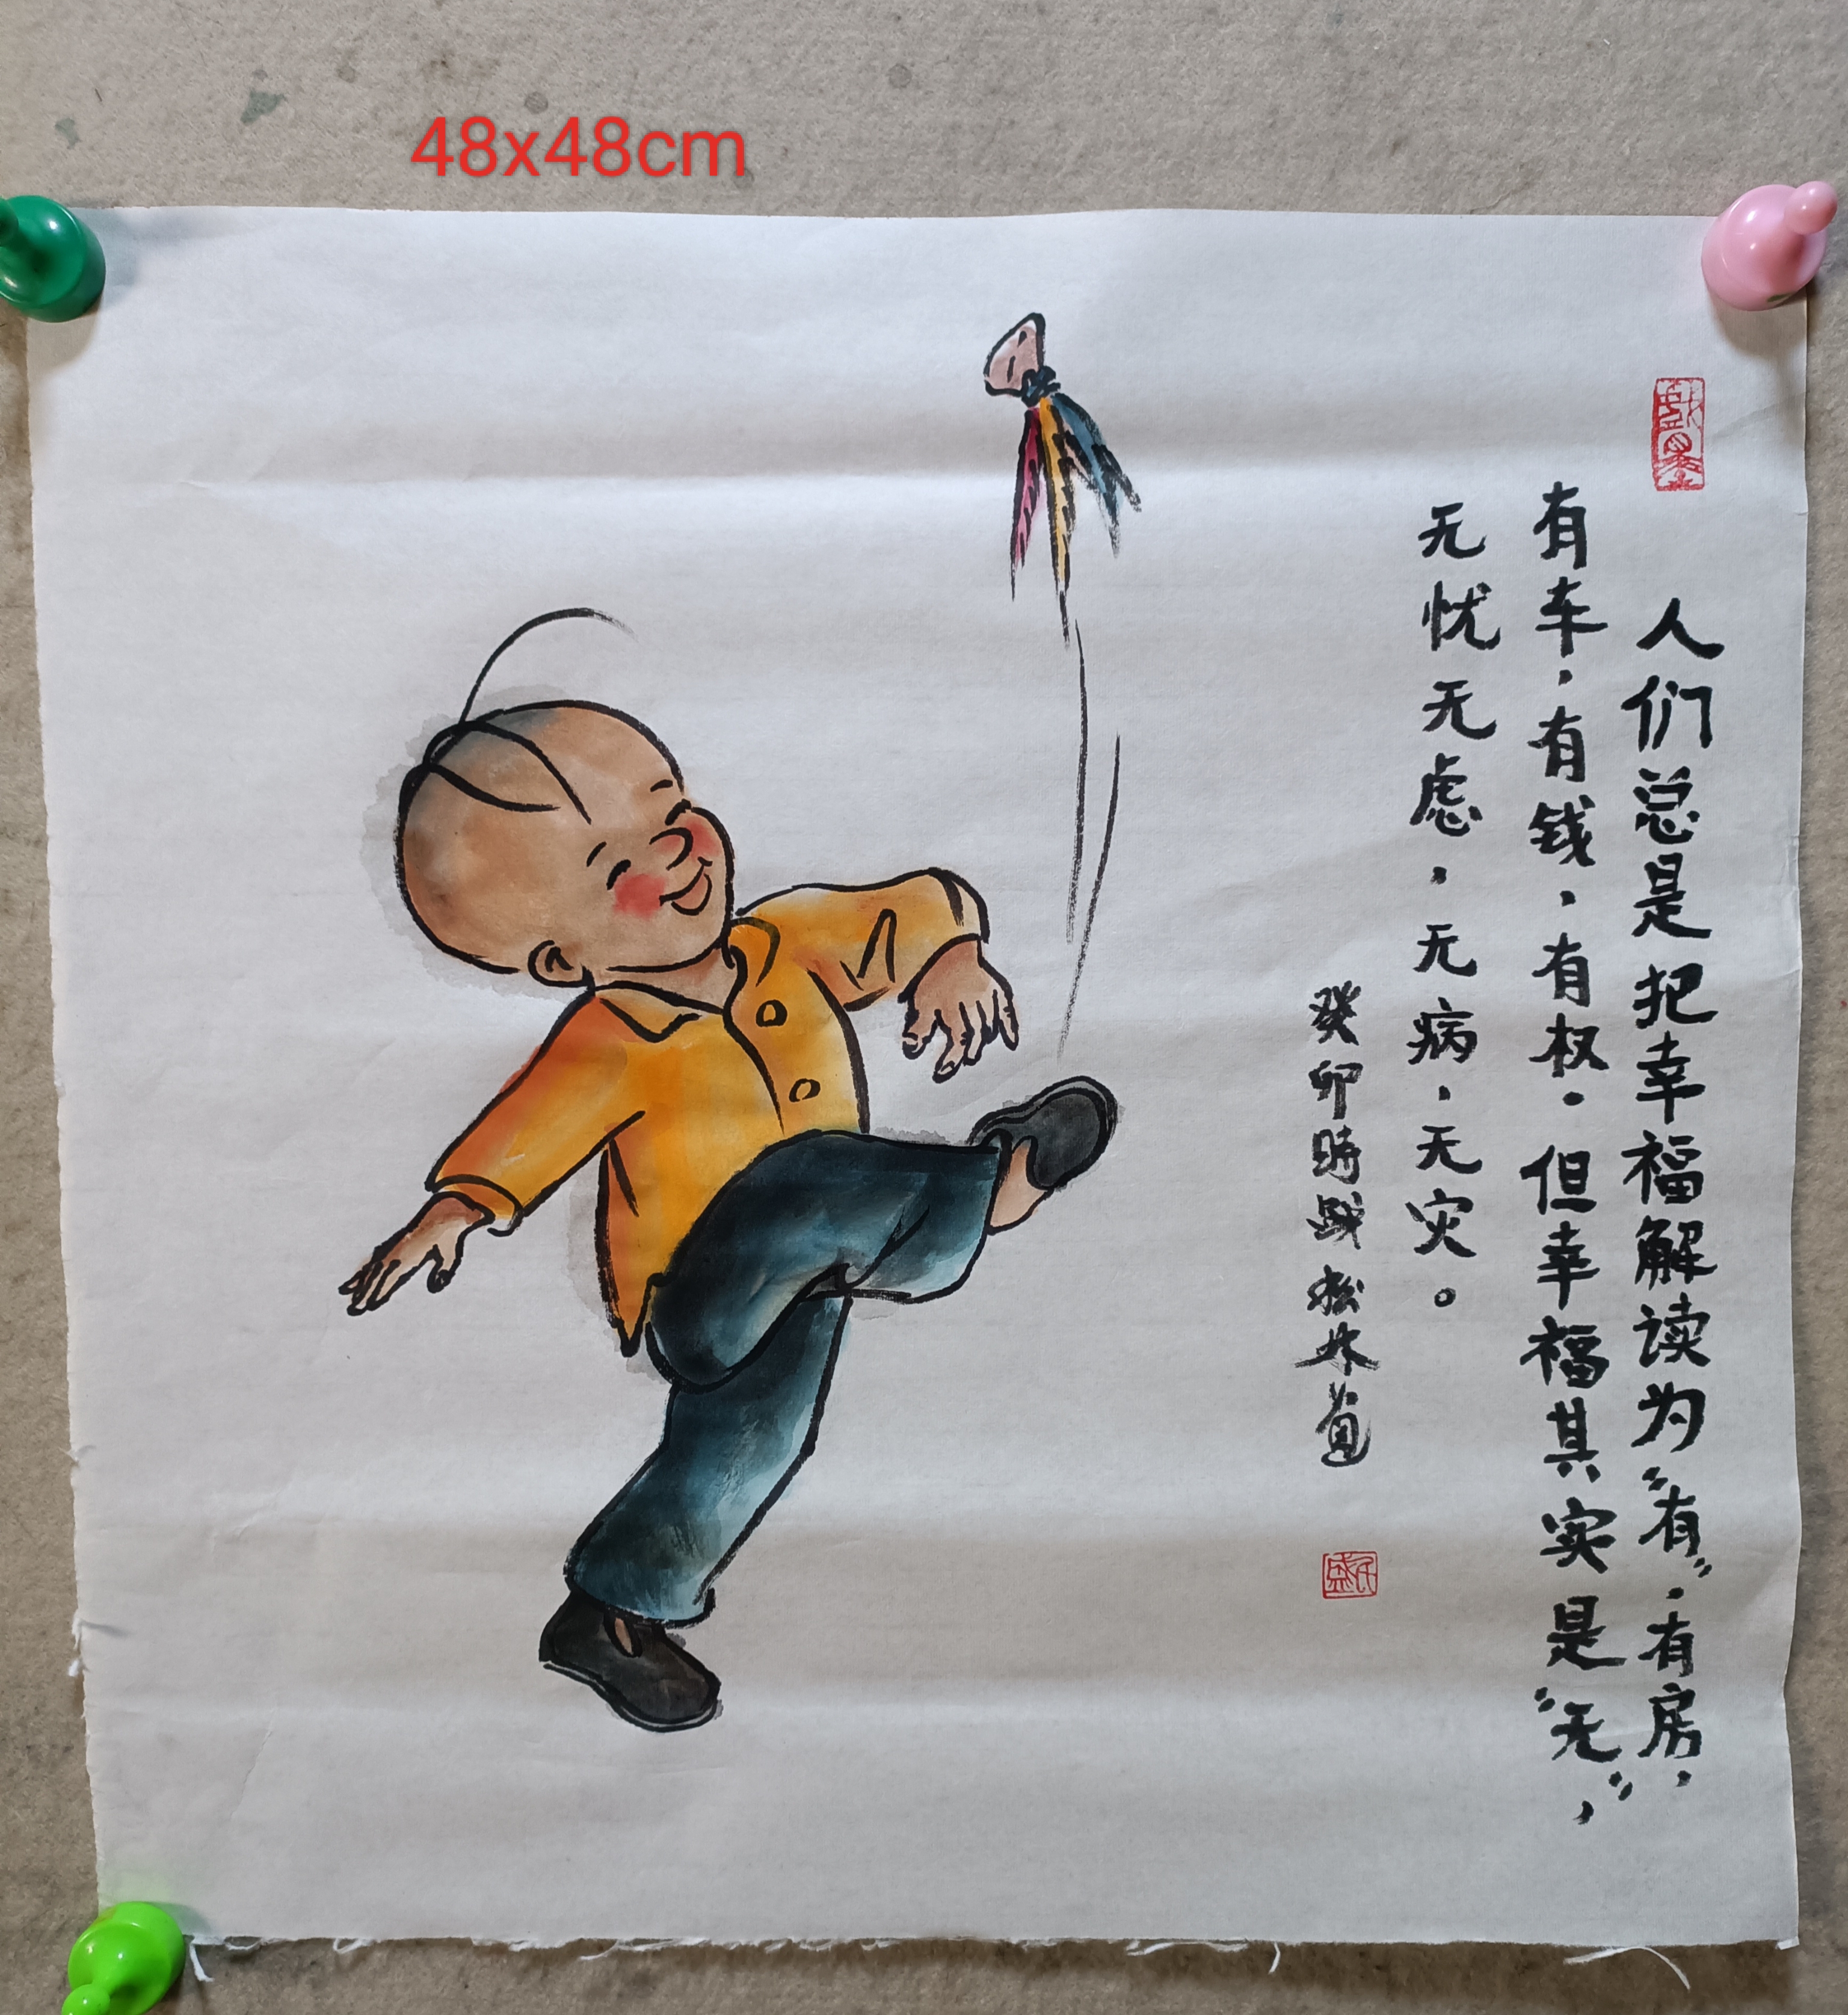 48x48cm
人们总是把幸福解读为“有”，有房，
有车，有钱，有权。但幸福其实是“无”，
无忧无虑，无病，无灾。
癸卯時 松林